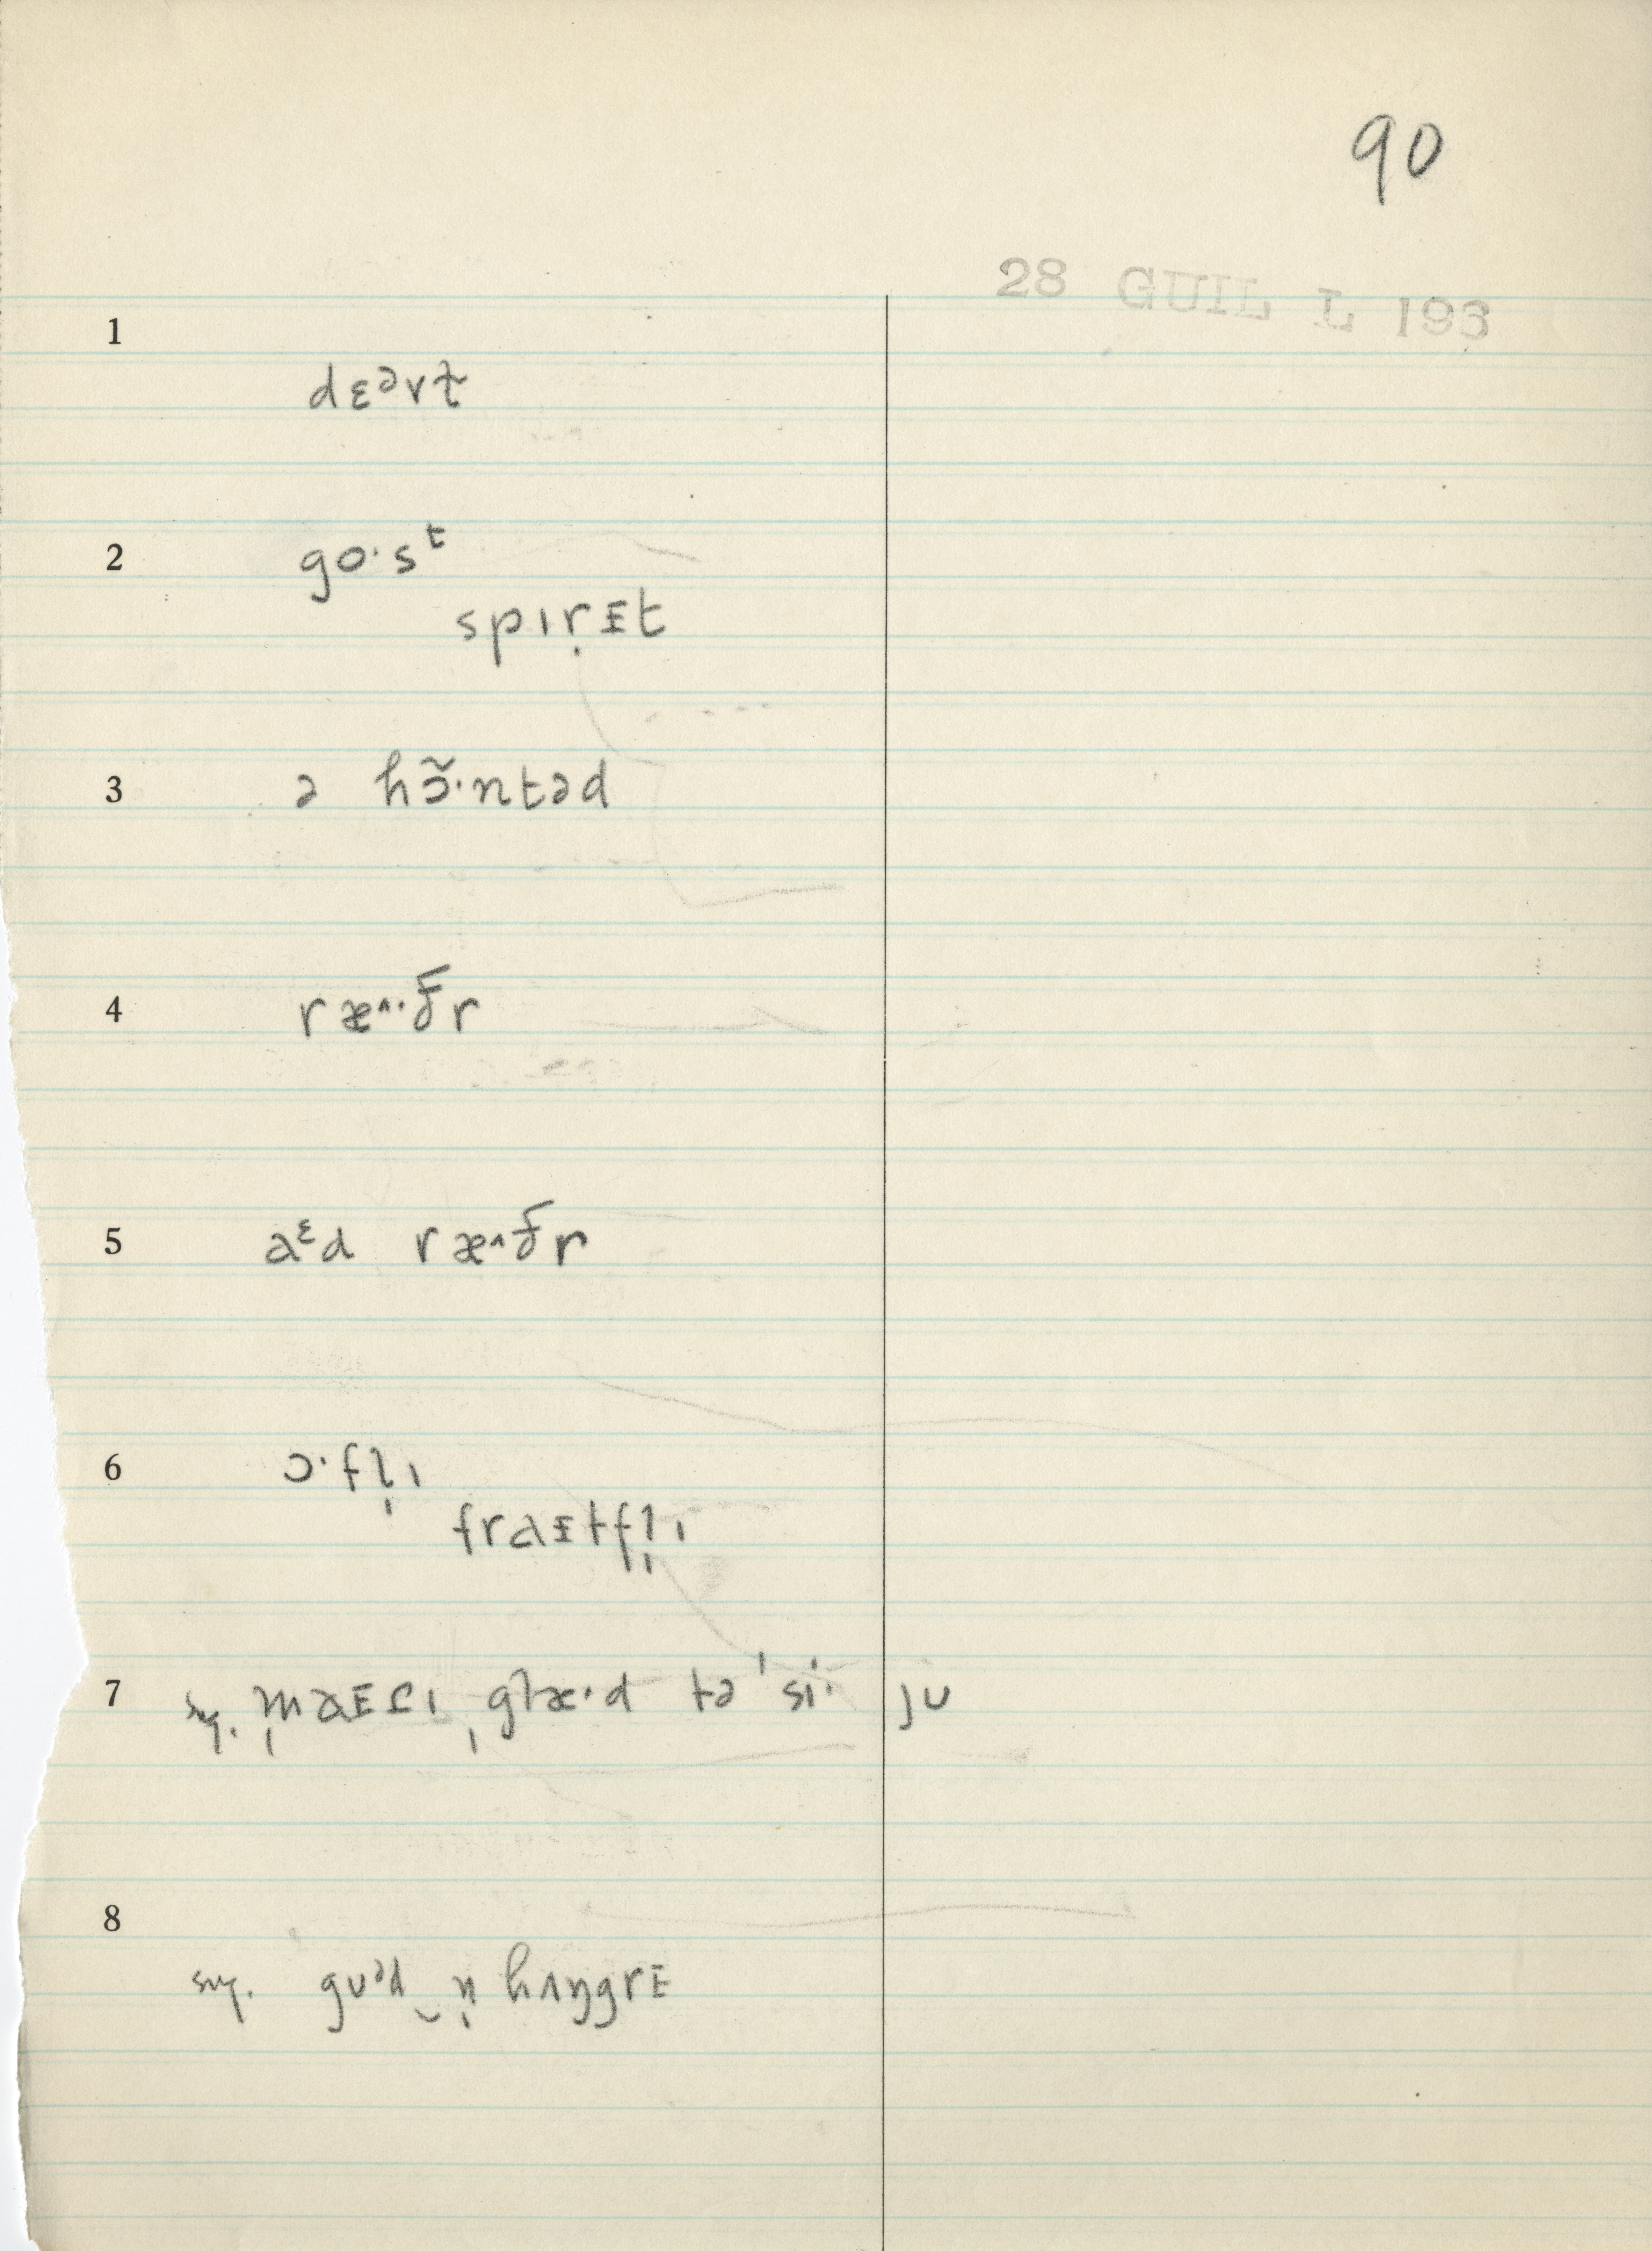 90
28 GUIL L 193
1
dɛᵊrt̵
2
go·sᵗ
spɪṛɪt
3
ə hɔ̃·ntəd
4
ræ^·ð̵r
5
aᵋd ræ^ð̵r
6
ɔ·fl̩ɪ
fraɪtfl̩ɪ
7
sug. m̩aɪtɪ ˌglæ·d tə ˈsi· ju
8
sug. guᵊd ‿ n̩ hʌŋgrɪ